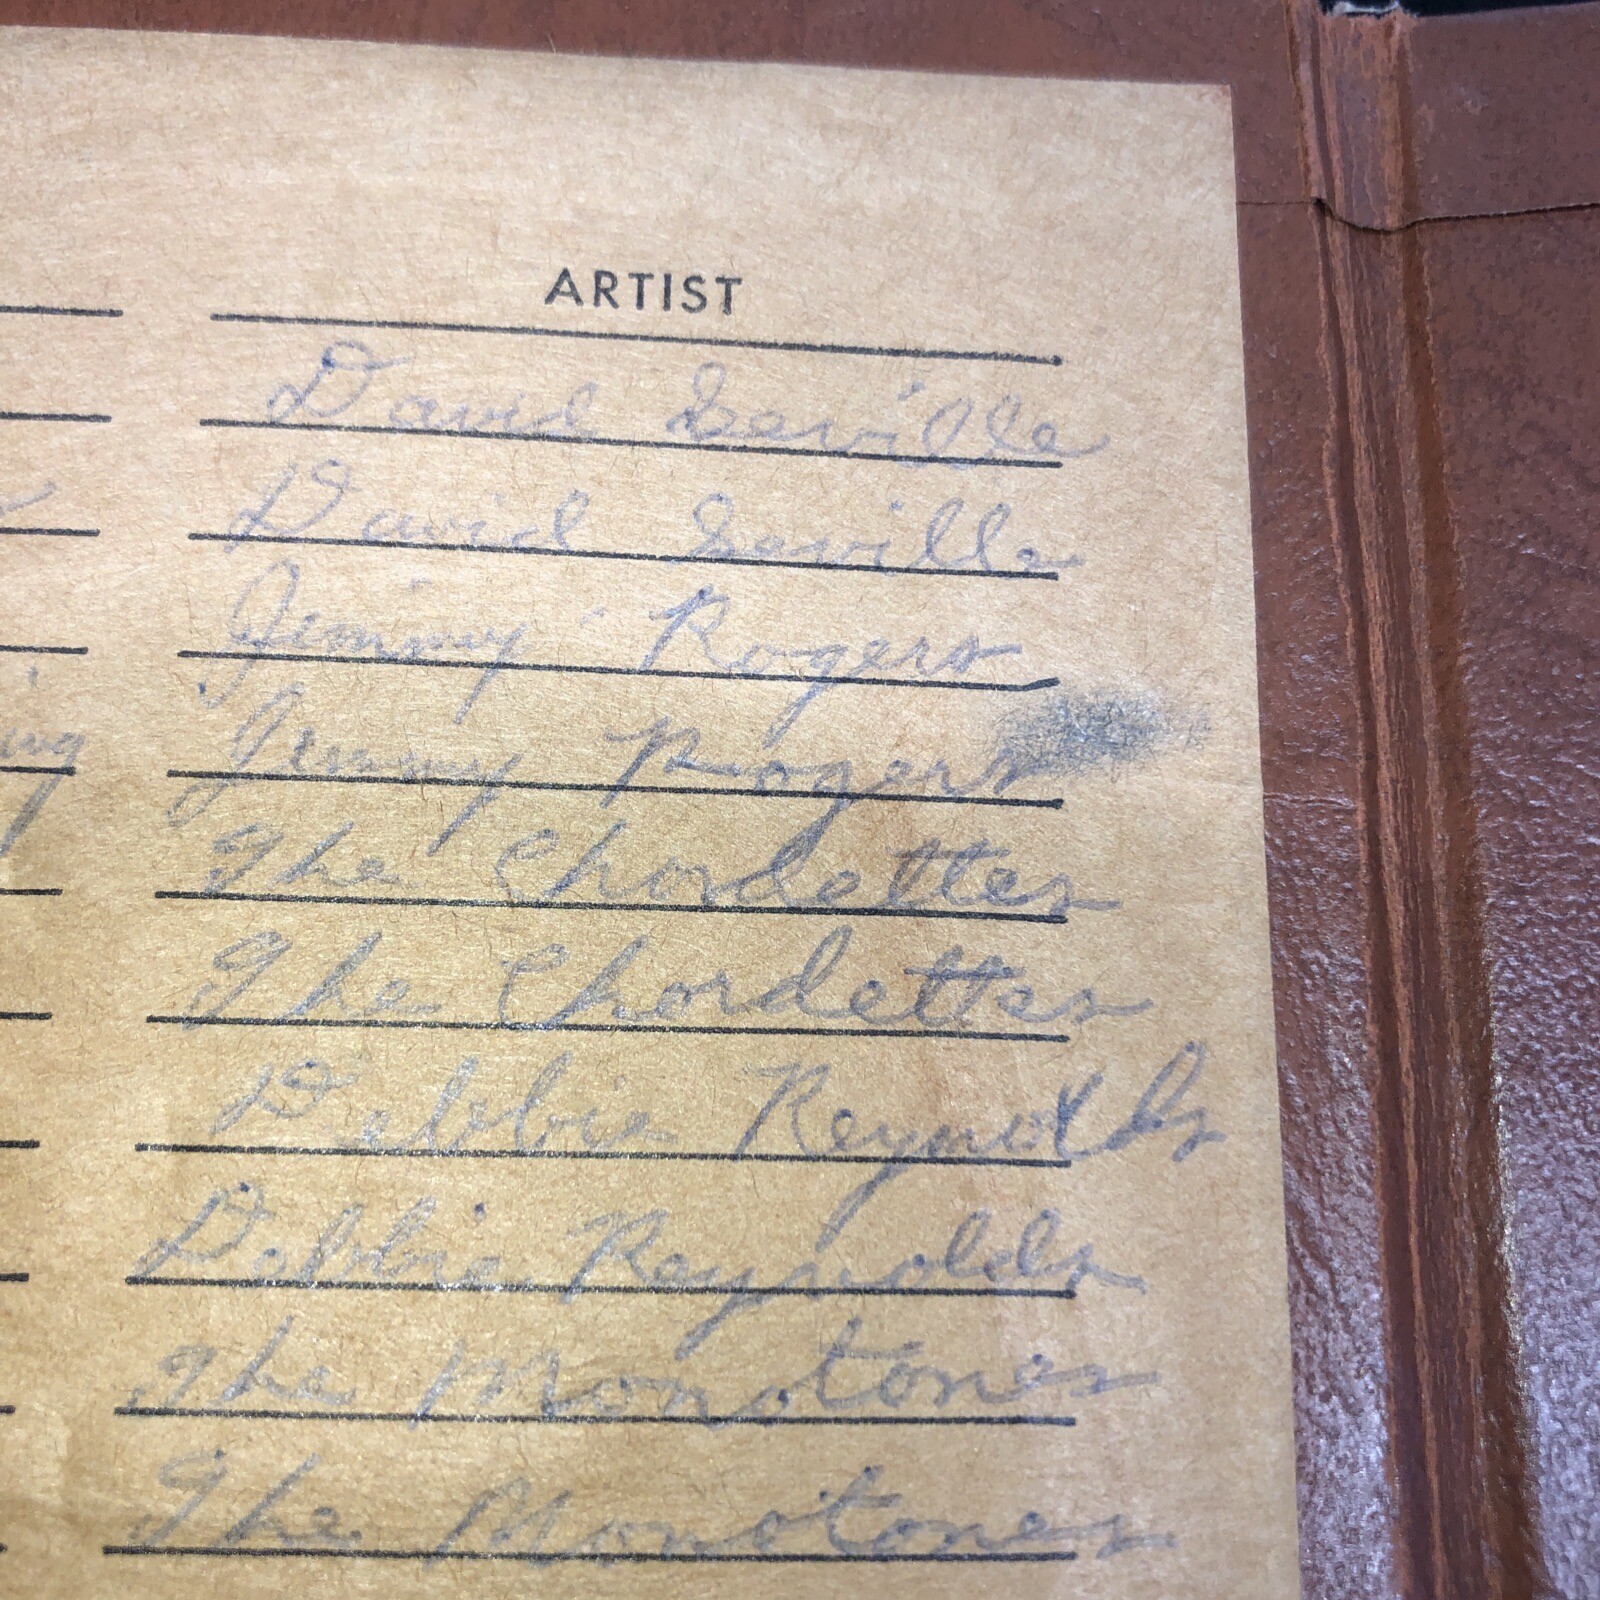 ARTIST
David Seville
David Seville
Jimmy Rogers
ing Jimmy Rogers
The Chordettes
The Chordettes
Debbie Reynolds
Debbie Reynolds
The Monotones
The Monotones